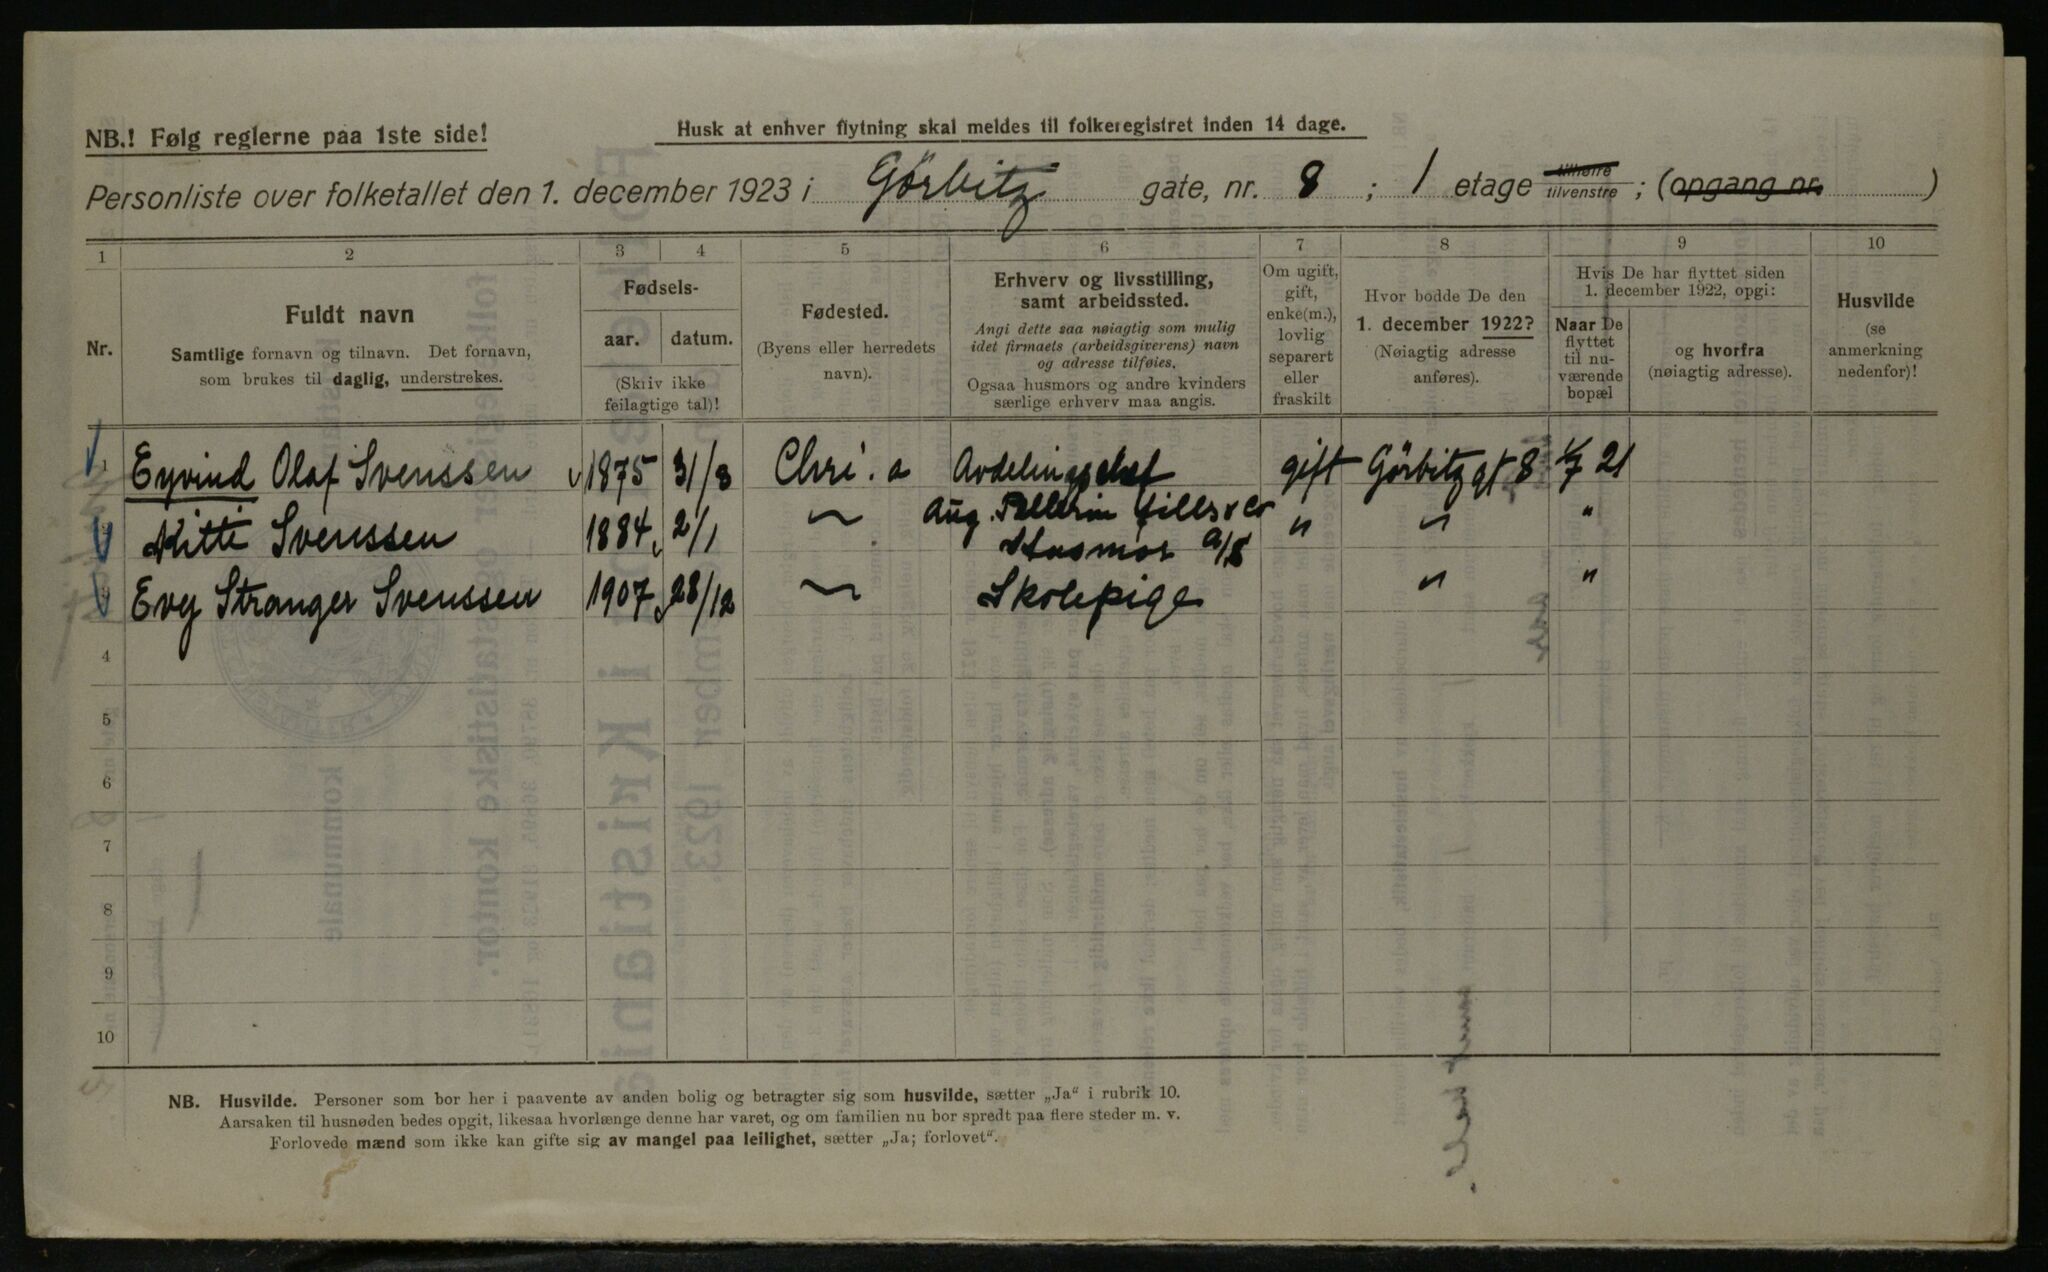 NB.! Følg reglerne paa 1ste side!
Husk at enhver flytning skal meldes til folkeregistret inden 14 dage.
Personliste over folketallet den 1. december 1923 i Görbitz gate, nr. 8 ; 1 etage tilhøire tilvenstre ; (opgang nr. )
1 2 3 4 5 6 7 8 9 10
Nr.
Fuldt navn
Samtlige fornavn og tilnavn. Det fornavn,
som brukes til daglig, understrekes.
Fødsels-
aar. datum.
(Skriv ikke
feilagtige tal)!
Fødested.
(Byens eller herredets
navn).
Erhverv og livsstilling,
samt arbeidssted.
Angi dette saa nøiagtig som mulig
idet firmaets (arbeidsgiverens) navn
og adresse tilføies.
Ogsaa husmors og andre kvinders
særlige erhverv maa angis.
Om ugift,
gift,
enke(m.),
lovlig
separert
eller
fraskilt
Hvor bodde De den
1. december 1922?
(Nøiagtig adresse
anføres).
Hvis De har flyttet siden
1. december 1922, opgi:
Naar De
flyttet
til nu-
værende
bopæl
og hvorfra
(nøiagtig adresse).
Husvilde
(se
anmerkning
nedenfor)!
1 Eyvind Olaf Svenssen 1875 31/8 Chri.a Avdelingschef gift Görbitzgt 8 1/7 21
Aug. Pellerin fills & Co
2 Kitti Svenssen 1884 2/1 〃 Husmor A/S 〃 〃 〃
3 Evy Stranger Svenssen 1907 28/12 〃 Skolepige 〃 〃
4
5
6
7
8
9
10
NB. Husvilde. Personer som bor her i paavente av anden bolig og betragter sig som husvilde, sætter „Ja“ i rubrik 10.
Aarsaken til husnøden bedes opgit, likesaa hvorlænge denne har varet, og om familien nu bor spredt paa flere steder m. v.
Forlovede mænd som ikke kan gifte sig av mangel paa leilighet, sætter „Ja; forlovet“.